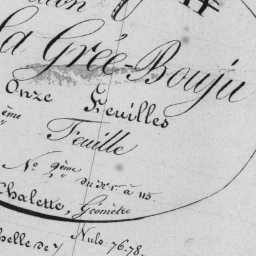 la Grée-Bouju
Onze Feuilles
ème
Feuille
N° 9ème
du N° 1 à 115.
Chalette, Géomètre
elle de
Nulo 76.78.